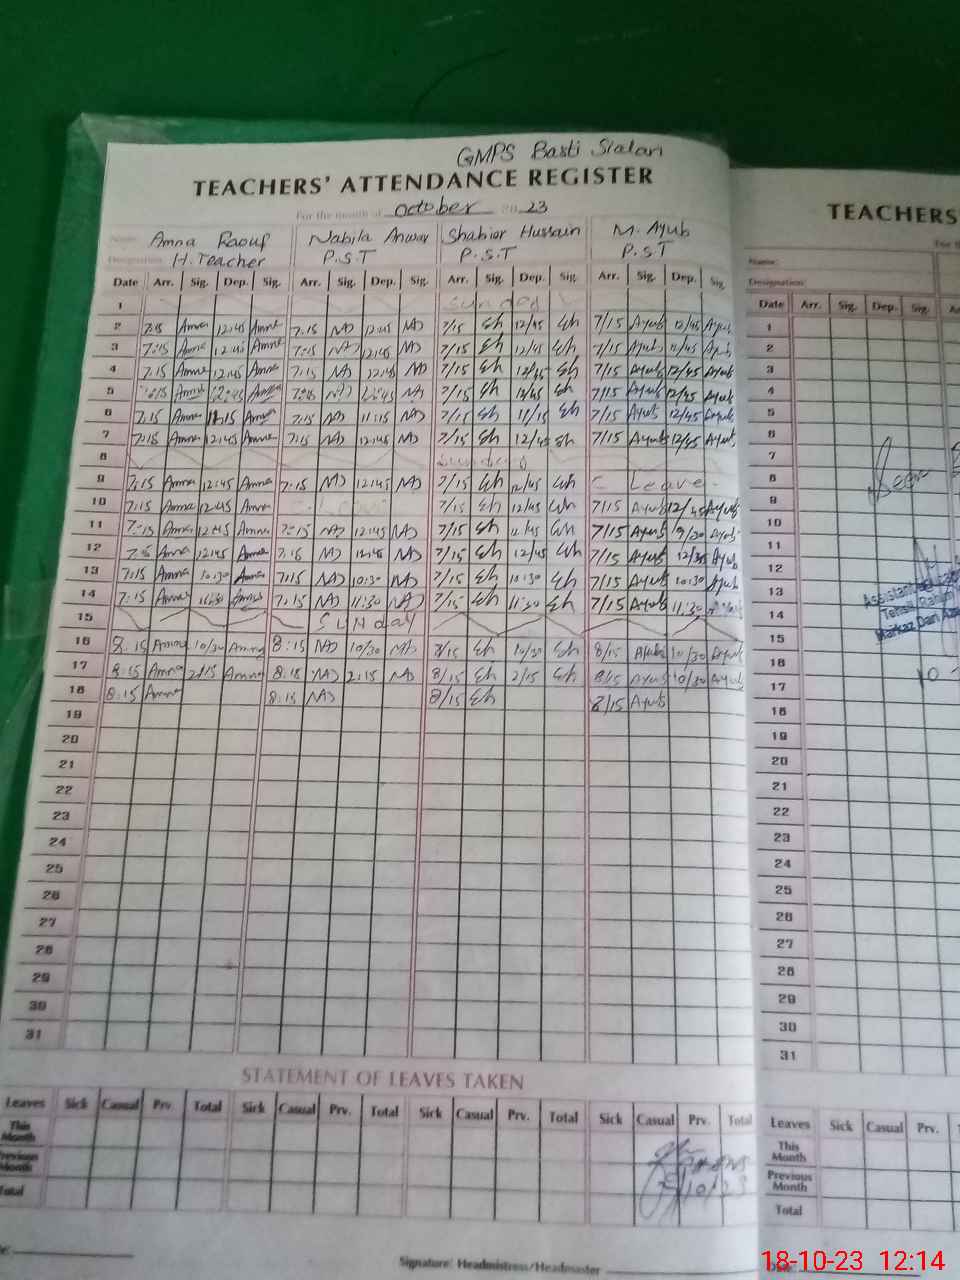 GMPS Basti Sialan
TEACHERS' ATTENDANCE REGISTER
For the month of October 2023
Name: Amna Raouf Nabila Anwar Shabior Hussain M. Ayub
Designation: H. Teacher P.S.T P.S.T P.S.T
Date Arr. Sig. Dep. Sig. Arr. Sig. Dep. Sig. Arr. Sig. Dep. Sig. Arr. Sig. Dep. Sig.
1 Sunday
2 7:15 Amna 12:45 Amna 7:15 NA 12:45 NA 7/15 Sh 12/45 Sh 7/15 Ayub 12/45 Ayub
3 7:15 Amna 12:45 Amna 7:15 NA 12:45 NA 7/15 Sh 12/45 Sh 7/15 Ayub 12/45 Ayub
4 7:15 Amna 12:45 Amna 7:15 NA 12:45 NA 7/15 Sh 12/45 Sh 7/15 Ayub 12/45 Ayub
5 7:15 Amna 12:45 Amna 7:15 NA 12:45 NA 7/15 Sh 12/45 Sh 7/15 Ayub 12/45 Ayub
6 7:15 Amna 11:15 Amna 7:15 NA 11:15 NA 7/15 Sh 11/15 Sh 7/15 Ayub 12/45 Ayub
7 7:15 Amna 12:45 Amna 7:15 NA 12:45 NA 7/15 Sh 12/45 Sh 7/15 Ayub 12/45 Ayub
8 Sunday
9 7:15 Amna 12:45 Amna 7:15 NA 12:45 NA 7/15 Sh 12/45 Sh Leave
10 7:15 Amna 12:45 Amna 7/15 Sh 12/45 Sh 7/15 Ayub 12/45 Ayub
11 7:15 Amna 12:45 Amna 7:15 NA 12:45 NA 7/15 Sh 12/45 Sh 7/15 Ayub 9/30 Ayub
12 Amna 12:45 Amna NA 12:45 NA 7/15 Sh 12/45 Sh 7/15 Ayub Ayub
13 7:15 Amna 10:30 Amna 7:15 NA 10:30 NA 7/15 Sh 10:30 Sh 7/15 Ayub 10:30 Ayub
14 7:15 Amna 11:30 Amna 7:15 NA 11:30 NA 7/15 Sh 11:30 Sh 7/15 Ayub 11:30 Ayub
15 Sunday
16 8:15 Amna 10/30 Amna 8:15 NA 10/30 NA 8/15 Sh 10/30 Sh 8/15 Ayub 10/30 Ayub
17 8:15 Amna 2/15 Amna 8:15 NA 2:15 NA 8/15 Sh 2/15 Sh 8/15 Ayub 10/30 Ayub
18 8:15 Amna 8:15 NA 8/15 Sh 8/15 Ayub
19
20
21
22
23
24
25
26
27
28
29
30
31
STATEMENT OF LEAVES TAKEN
Leaves Sick Casual Prv. Total Sick Casual Prv. Total Sick Casual Prv. Total Sick Casual Prv. Total
This Month
Previous Month
Total
Signature: Headmistress/Headmaster
TEACHERS
Name:
Designation:
Date Arr. Sig. Dep. Sig.
1
2
3
4
5
6
7
8
9
10
11
12
13
14
15
16
17
18
19
20
21
22
23
24
25
26
27
28
29
30
31
Leaves Sick Casual Prv.
This Month
Previous Month
Total
Date:
18-10-23 12:14